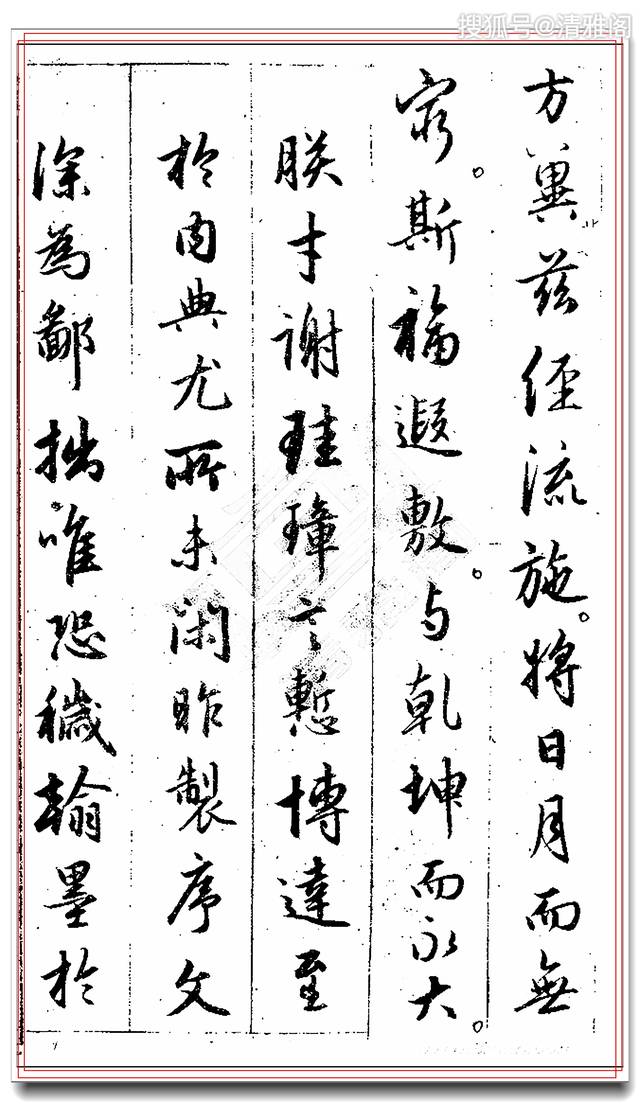 搜狐号@清雅阁
方兾兹经流施。将日月而無
窮。斯福遐敷。与乾坤而永大。
朕才謝珪璋言慙博達至
於内典尤所未閑昨製序文
深為鄙拙唯恐穢翰墨於